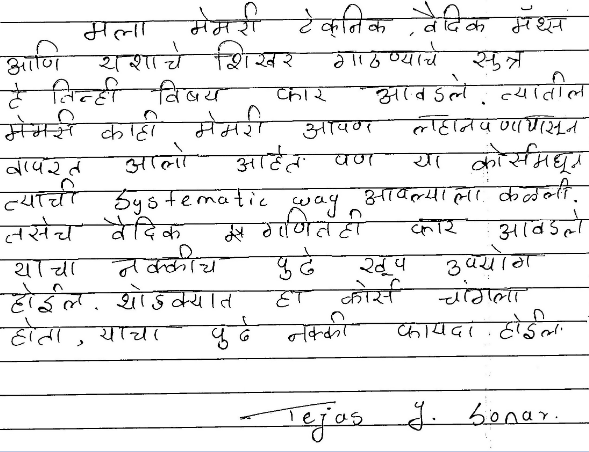 मला मेमरी टेक्निक, वैदिक मॅथ्स
आणि यशाचे शिखर गाठण्याचे सुत्र
हे तिन्ही विषय फार आवडले. त्यातील
मेमरी काही मेमरी आपण लहानपणापासून
वापरत आलो आहेत पण या कोर्समधून
त्याची Systematic way आपल्याला कळली.
तसेच वैदिक गणितही फार आवडले
याचा नक्कीच पुढे खूप उपयोग
होईल. थोडक्यात हा कोर्स चांगला
होता, याचा पुढे नक्की फायदा होईल.
Tejas Y. Sonar.